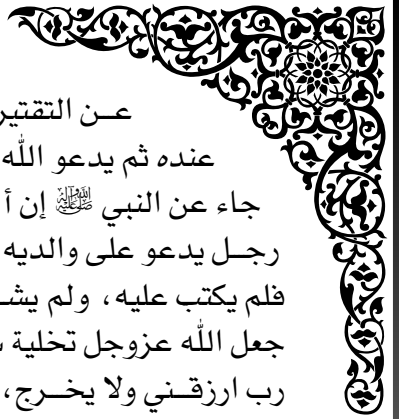 عن التقتير
عنده ثم يدعو الله
جاء عن النبي ﷺ إن أ
رجل يدعو على والديه
فلم يكتب عليه، ولم يشـ
جعل الله عزوجل تخلية
رب ارزقني ولا يخرج،